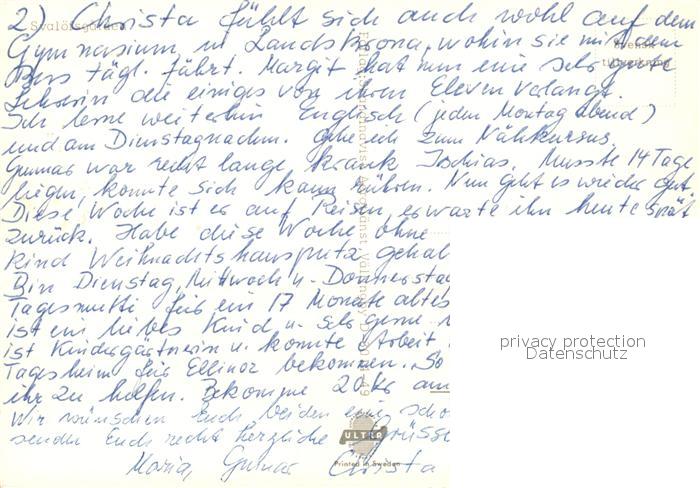 2) Christa fühlt sich auch wohl auf dem
Svalöfsgården
Gymnasium, in Landskrona, wohin sie mit dem
Svensk
tillverkning
Buss tägl. fährt. Margit hat nun eine sehr gute
Lehrerin die einiges von ihren Eleven verlangt.
Ich lerne weiterhin Englisch (jeden Montag abend)
und am Dienstagnachm. gehe ich zum Nähkursus.
Gunnar war recht lange krank Ischias. Musste 14 Tage
liegen, konnte sich kaum rühren. Nun geht es wieder gut
Diese Woche ist er auf Reisen, erwarte ihn heute spät
zurück. Habe diese Woche ohne
Kind Weihnachtshausputz gehab
Bin Dienstag, Mittwoch u. Donnerstag
Tagesmutti für ein 17 Monate altes
ist ein liebes Kind u. sehr gerne
ist Kindergärtnerin u. konnte Arbeit
Tagesheim für Ellinor bekommen. So
ihr zu helfen. Bekomme 20 Kr am
Wir wünschen Euch beiden eine schö
senden Euch recht herzliche Grüsse
ULTRA
Maria, Gunnar Christa
Printed in Sweden
privacy protection
Datenschutz